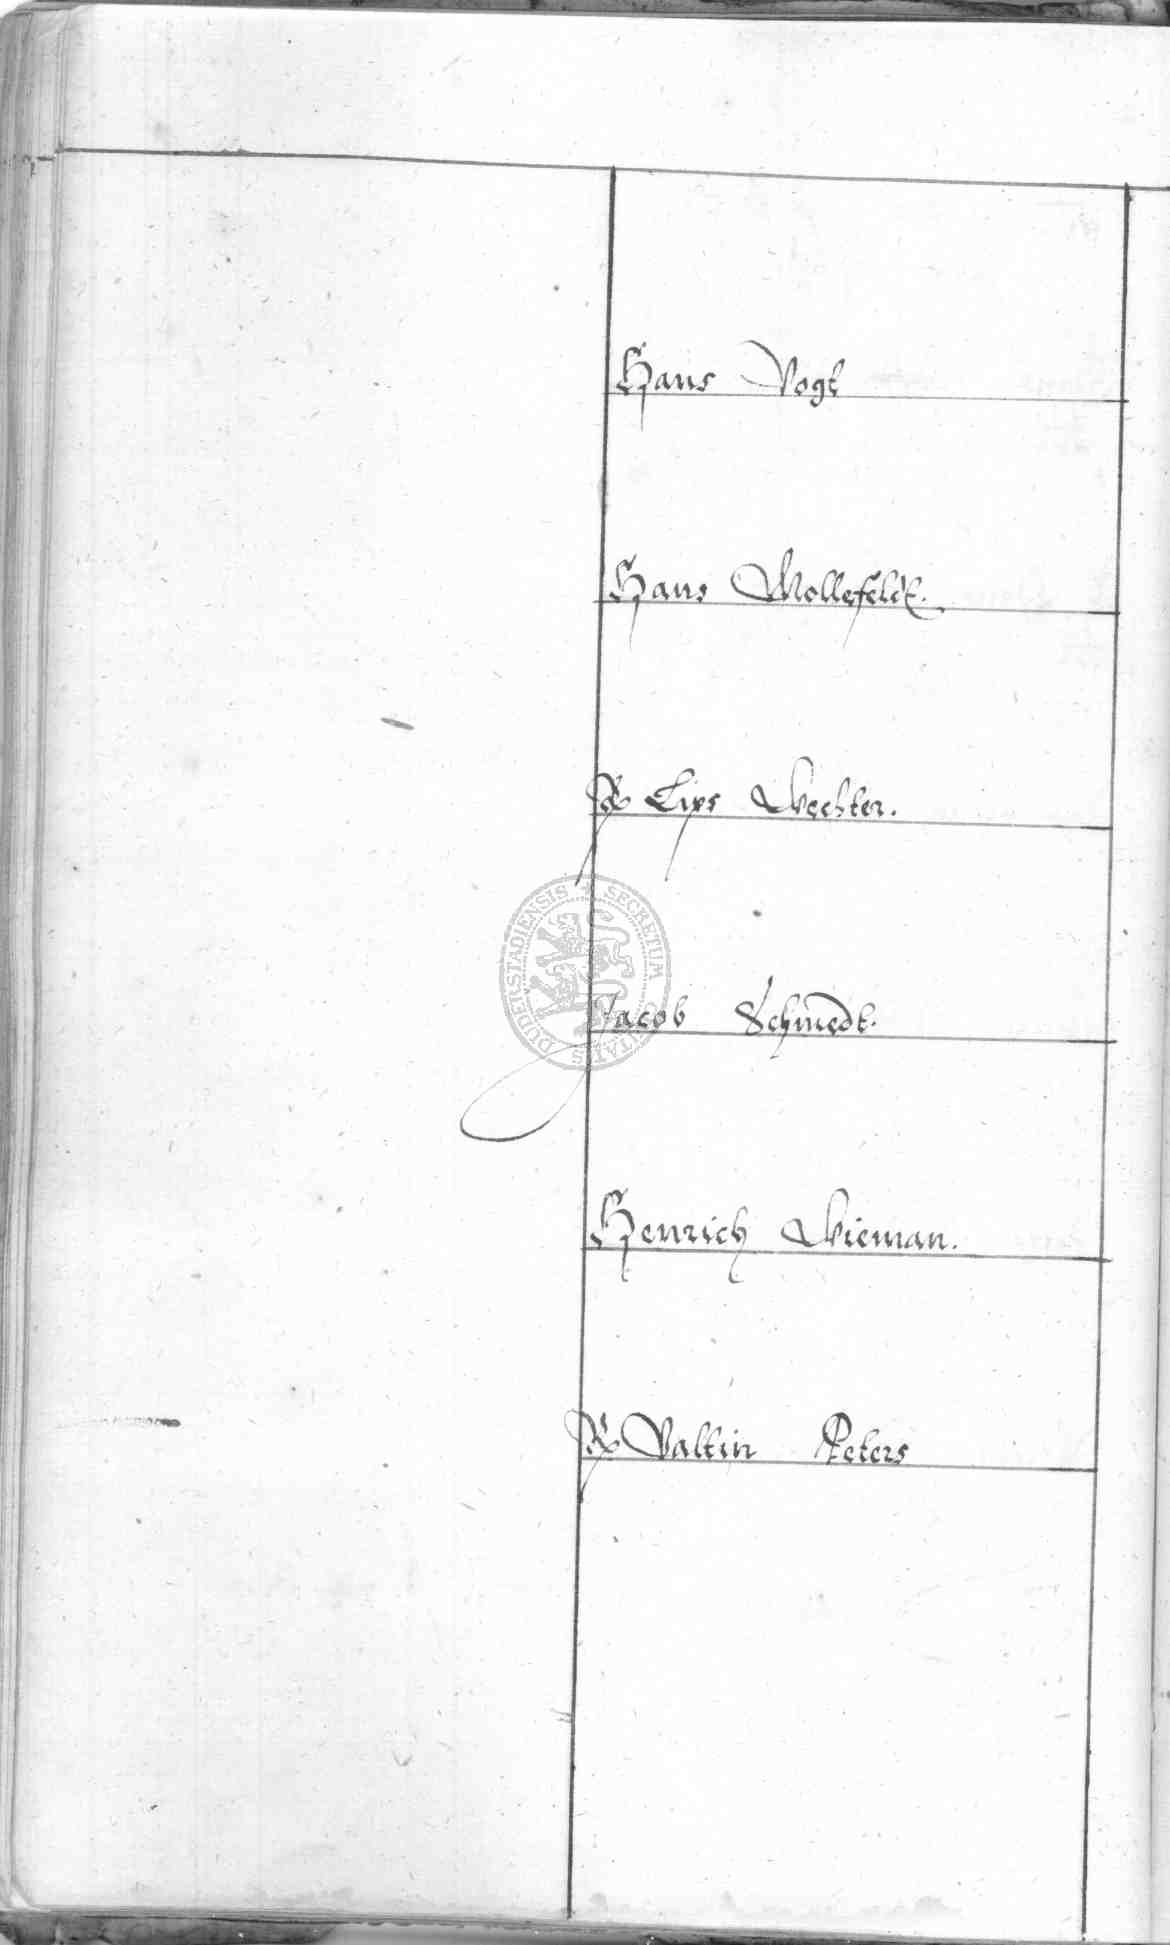 Hans Vogt
Hans Mollefeldt.
Lips Wechter.
DUDERSTADIENSIS SECRETUM
Jacob Schmedt.
Henrich Wieman.
Valtin Peters